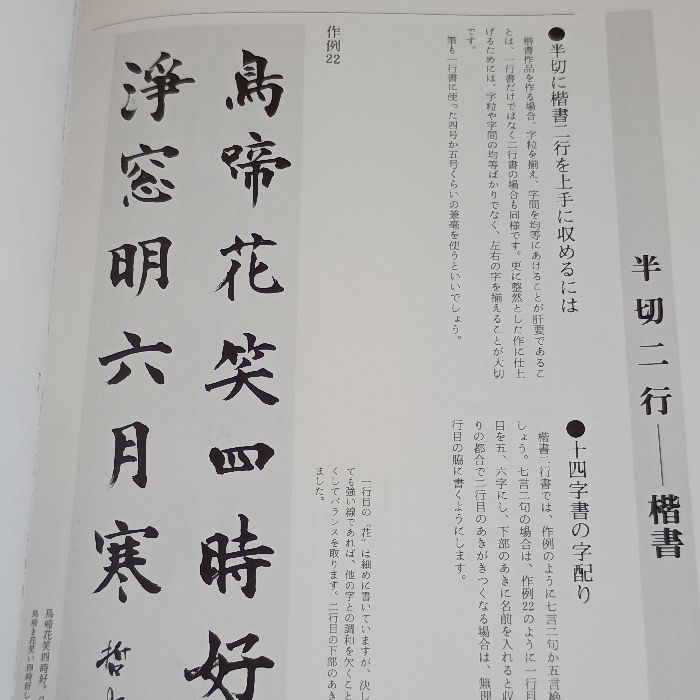 半切二行──楷書
●半切に楷書二行を上手に収めるには
楷書作品を作る場合、字粒を揃え、字間を均等にあけることが肝要であるこ
とは、一行書だけではなく二行書の場合も同様です。更に整然とした作に仕上
げるためには、字粒や字間の均等ばかりでなく、左右の字を揃えることが大切
です。
筆も一行書に使った四号か五号くらいの兼毫を使うといいでしょう。
●十四字書の字配り
楷書二行書では、作例のように七言二句か五言絶
しょう。七言二句の場合は、作例22のように一行目
目を五、六字にし、下部のあきに名前を入れると収
りの都合で二行目のあきがきつくなる場合は、無理
行目の脇に書くようにします。
作例22
一行目の「花」は細めに書いていますが、決し
ても強い線であれば、他の字との調和を欠くこと
くしてバランスを取ります。二行目の下部のあき
ました。
鳥啼花笑四時好
淨窓明六月寒 哲
鳥啼花笑四時好。
鳥啼き花笑い四時好し